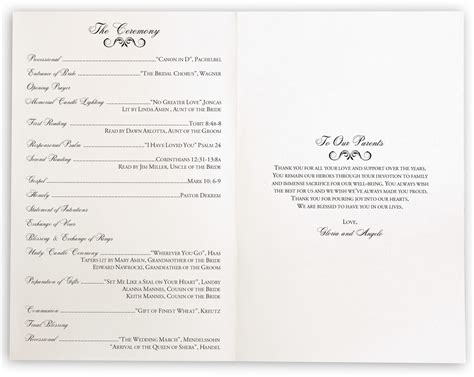 The Ceremony
Processional ... "Canon in D", Pachelbel
Entrance of Bride ... "The Bridal Chorus", Wagner
Opening Prayer
Memorial Candle Lighting ... "No Greater Love" Joncas
Lit by Linda Amen, Aunt of the Bride
First Reading ... Tobit 8:4b-8
Read by Dawn Arlotta, Aunt of the Groom
Responsorial Psalm ... "I Have Loved You" Psalm 24
Second Reading ... Corinthians 12:31-13:8a
Read by Jim Miller, Uncle of the Bride
Gospel ... Mark 10: 6-9
Homily ... Pastor Dekrem
Statement of Intentions
Exchange of Vows
Blessing & Exchange of Rings
Unity Candle Ceremony ... "Wherever You Go", Haas
Tapers lit by Mary Amen, Grandmother of the Bride
Edward Nawrocki, Grandfather of the Groom
Preparation of Gifts ... "Set Me Like a Seal on Your Heart", Landry
Alanna Mannes, Cousin of the Bride
Keith Mannes, Cousin of the Bride
Communion ... "Gift of Finest Wheat", Kreutz
Final Blessing
Recessional ... "The Wedding March", Mendelssohn
"Arrival of the Queen of Sheba", Handel
To Our Parents
Thank you for all your love and support over the years.
You remain our heroes through your devotion to family
and immense sacrifice for our well-being. You always wish
the best for us and we wish you've always made us proud.
Thank you for pouring joy into our hearts.
We are blessed to have you in our lives.
Love,
Gloria and Angelo